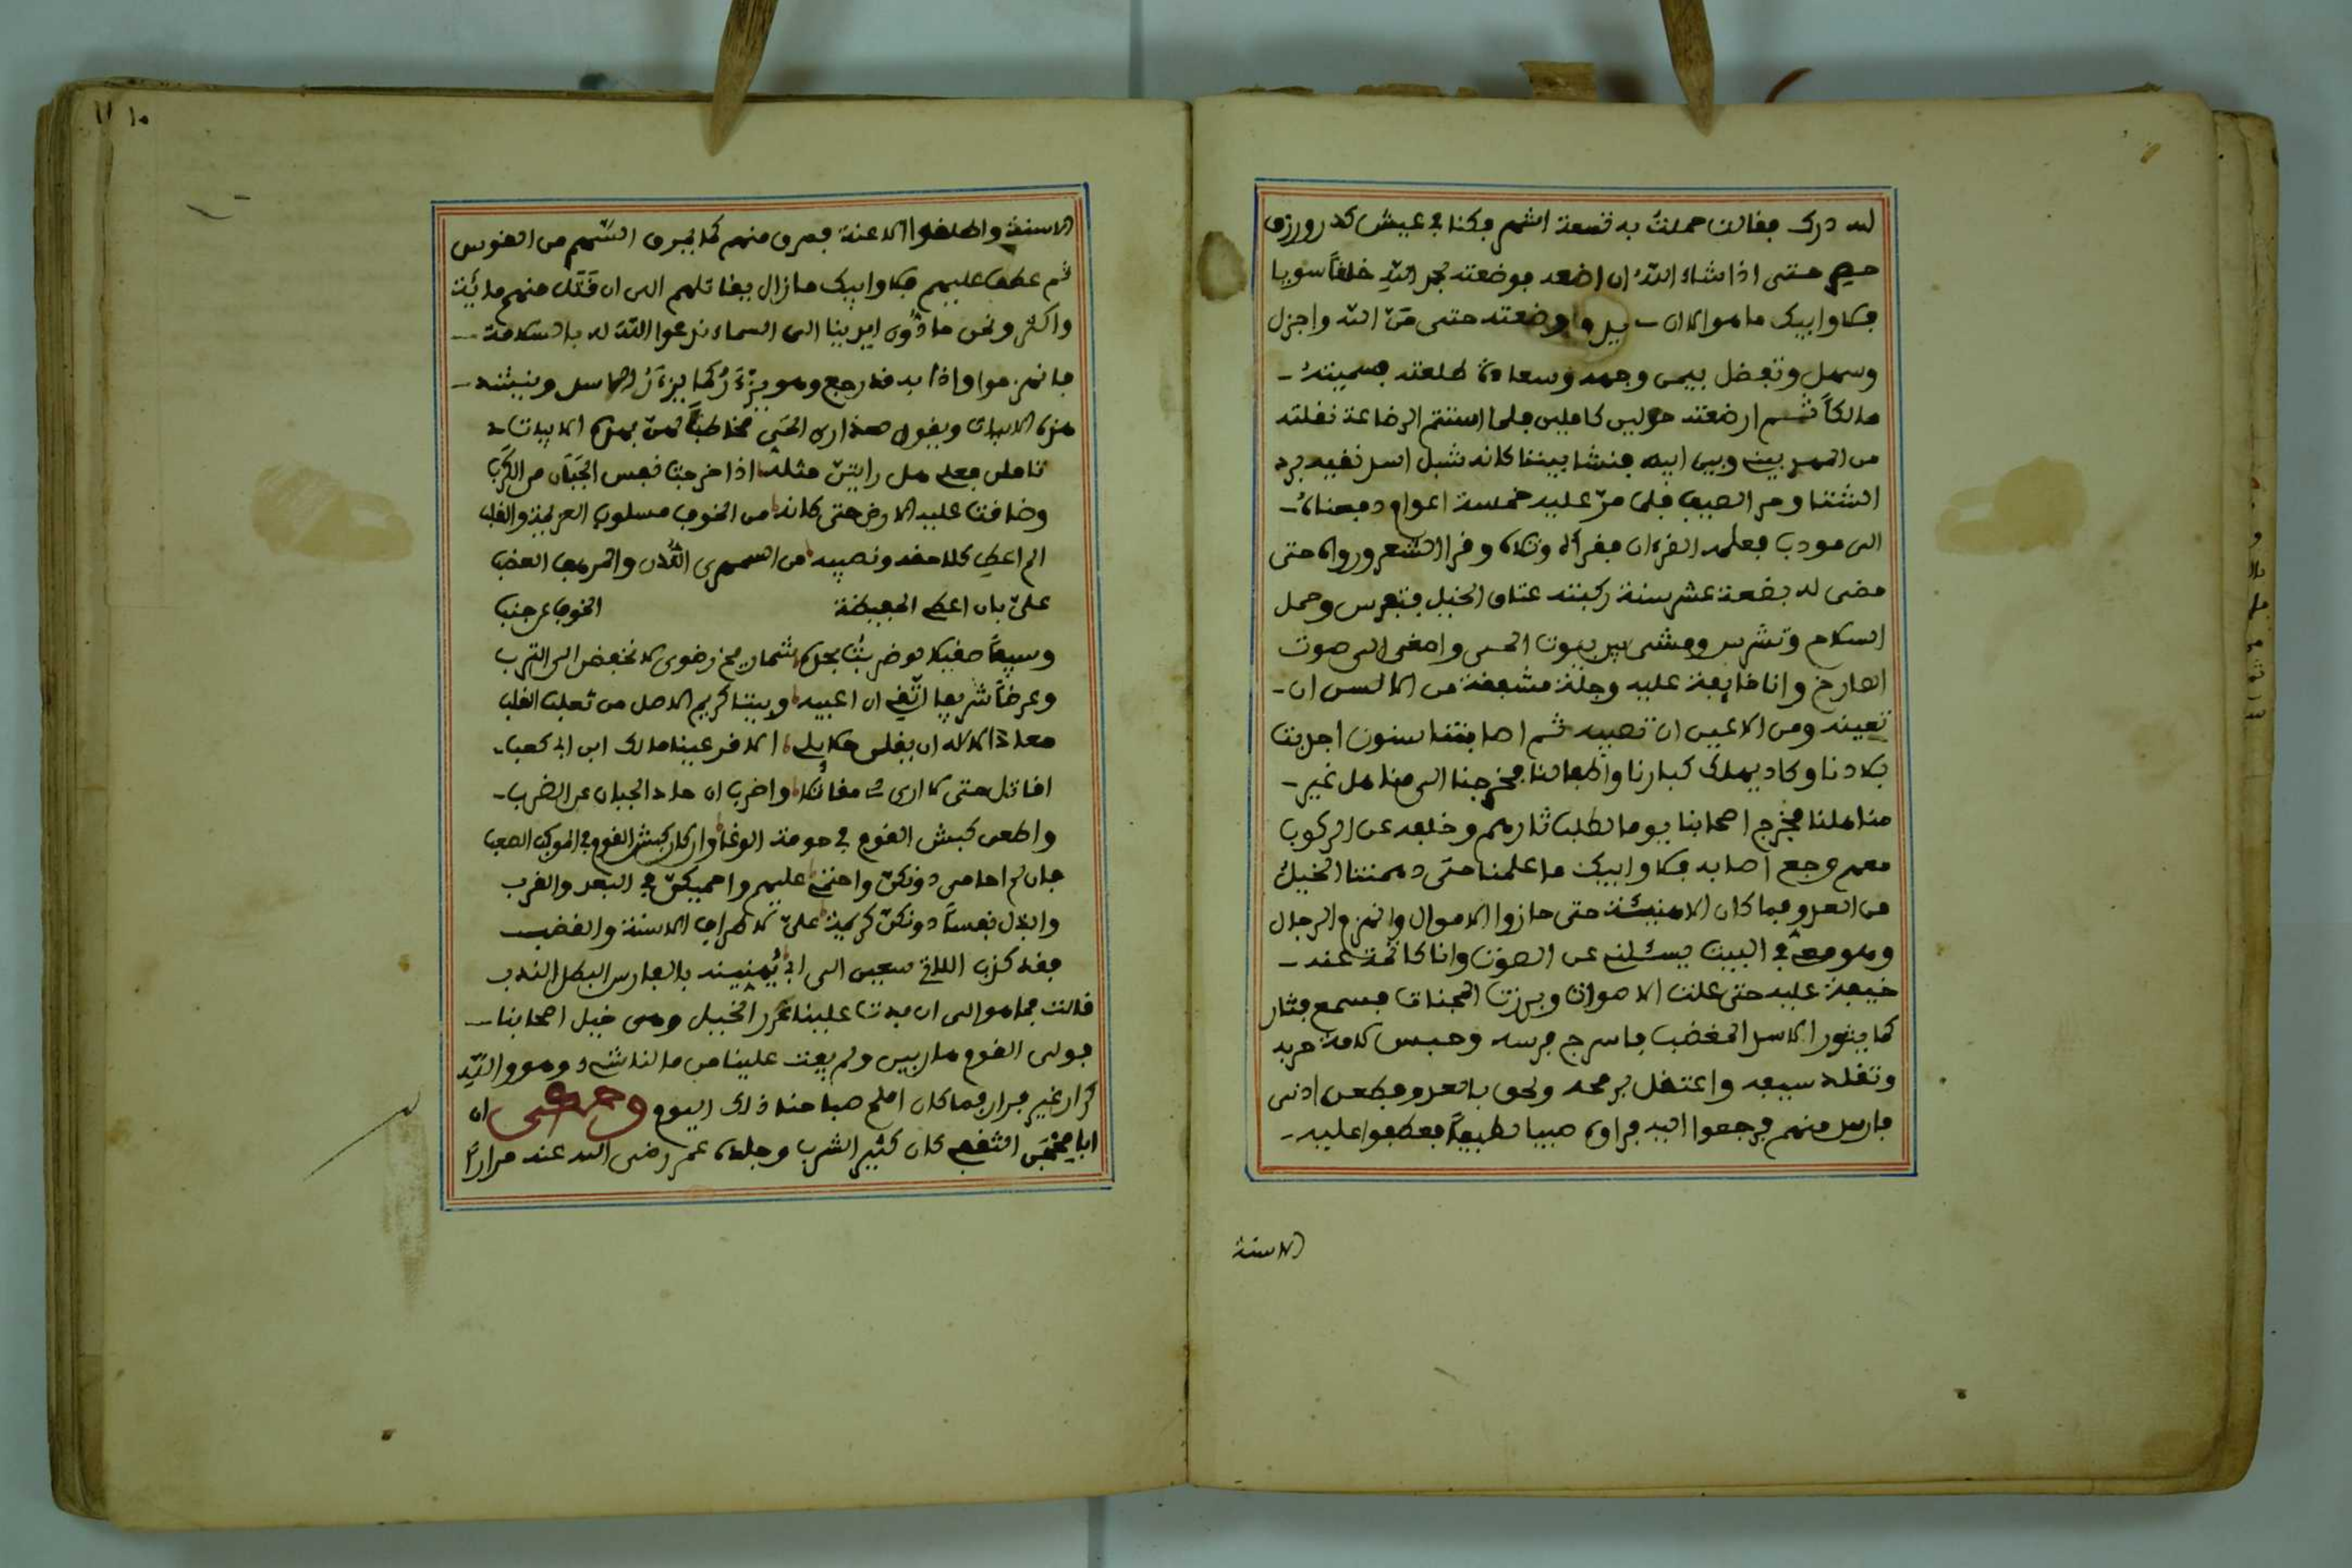 لله درك فقالت حملت به تسعة اشهر وكنا في عيش كدر ورزق
حتى اذا شاء الله ان اضعه فوضعته بحمد الله خلقا سويا
فلا وابيك ما هو الا ان وضعته حتى من الله واجزل
وسهل وتفضل بيمن وجهه وسعادة طلعته فسميته
مالكاً ثم ارضعته حولين كاملين فلما استتم الرضاعة نقلته
من المهد بيني وبين ابيه فنشا بيننا كانه شبل اسد نقيه برد
الشتا وحر الصيف فلما مرّ عليه خمسة اعوام دفعناه
الى مودب فعلمه القرءان فقراه وتلاه وقرا الشعر ورواه حتى
مضى له بضعة عشر سنة ركبته عتاق الخيل فتفرس وحمل
السلاح وتشرس ومشى بين بيوت الحي واصغى الى صوت
الصارخ وانا خايفة عليه وجلة مشفقة من الالسن ان
تعينه ومن الاعين ان تصيبه ثم اصابتنا سنون اجدبت
بلادنا وكاد يهلك كبارنا واطفالنا فخرجنا الى مناهل غير
مناهلنا فخرج اصحابنا يوما لطلب ثارهم وخلفه عن الركوب
معهم وجع اصابه فلا وابيك ما علمنا حتى دهمتنا الخيل
من العدو فما كان الا هنيئة حتى حازوا الاموال وانهزم الرجال
وهو معي في البيت يسئلني عن الصوت وانا كاتمة عنه
خيفة عليه حتى علت الاصوات وبرزت المخبات فسمع فثار
كما يثور الاسد المغضب فاسرج فرسه ولبس لامة حربه
وتقلد سيفه واعتقل برمحه ولحق بالعدو فطعن ادنى
فارس منهم فرجعوا اليه فراوه صبيا لطيفاً فعطفوا عليه
الاسنة
١٠ ١١
الاسنة واطلقوا الاعنة فمرق منهم كما يمرق السهم من القوس
ثم عطف عليهم فلا وابيك ما زال يقاتلهم الى ان قتل منهم مائة
واكثر ونحن مادون ايدينا الى السماء ندعوا الله له بالسلامة
فانهزموا واذا به قد رجع وهو يزءر كما يزءر الاسد وينشد
هذه الابيات ويقول عذارى الحي مخاطباً لهن بهذه الابيات
تاملن فعلي هل رايتن مثله اذا خرجت نفس الجبان من الكرب
وضاقت عليه الارض حتى كانه من الخوف مسلوب العزيمة والقلب
الم اعطي كلا حقه ونصيبه من السمهري اللدن والمرهف العضب
عليّ بان اعطي الحفيظة الخوف عن جنبي
وسيفاً صقيلا لو ضربت بحده شماريخ رضوى لانخفض الى الترب
وعرضاً شريفا اتقي ان اعيبه وبيتا كريم الاصل من ثعلب الغلب
معاذ الاله ان يفلن حلايلي الا قر عينا مالك ابن ابي كعب
اقاتل حتى لا ارى لي مقاتلا واضرب ان حاد الجبان عن الضرب
واطعن كبش القوم في حومة الوغا وارك كبش القوم في الموكب الصعب
فان لم احامي دونكن واحتمي عليهم واحميكن في البعد والقرب
وابذل نفساً دونكن كريمة عليّ لاطراف الاسنة والقضب
فقد كذب اللاتي سعين الى ابي يهنينه بالفارس البطل الندب
قالت فما هو الى ان بدت علينا غرر الخيل وهي خيل اصحابنا
فولى القوم هاربين ولم يفت علينا من مالنا شيء وهو والله
كرار غير فرار فما كان املح صباحنا ذلك اليوم وحكى ان
ابا محجن الثقفي كان كثير الشرب وجلده عمر رضي الله عنه مراراً